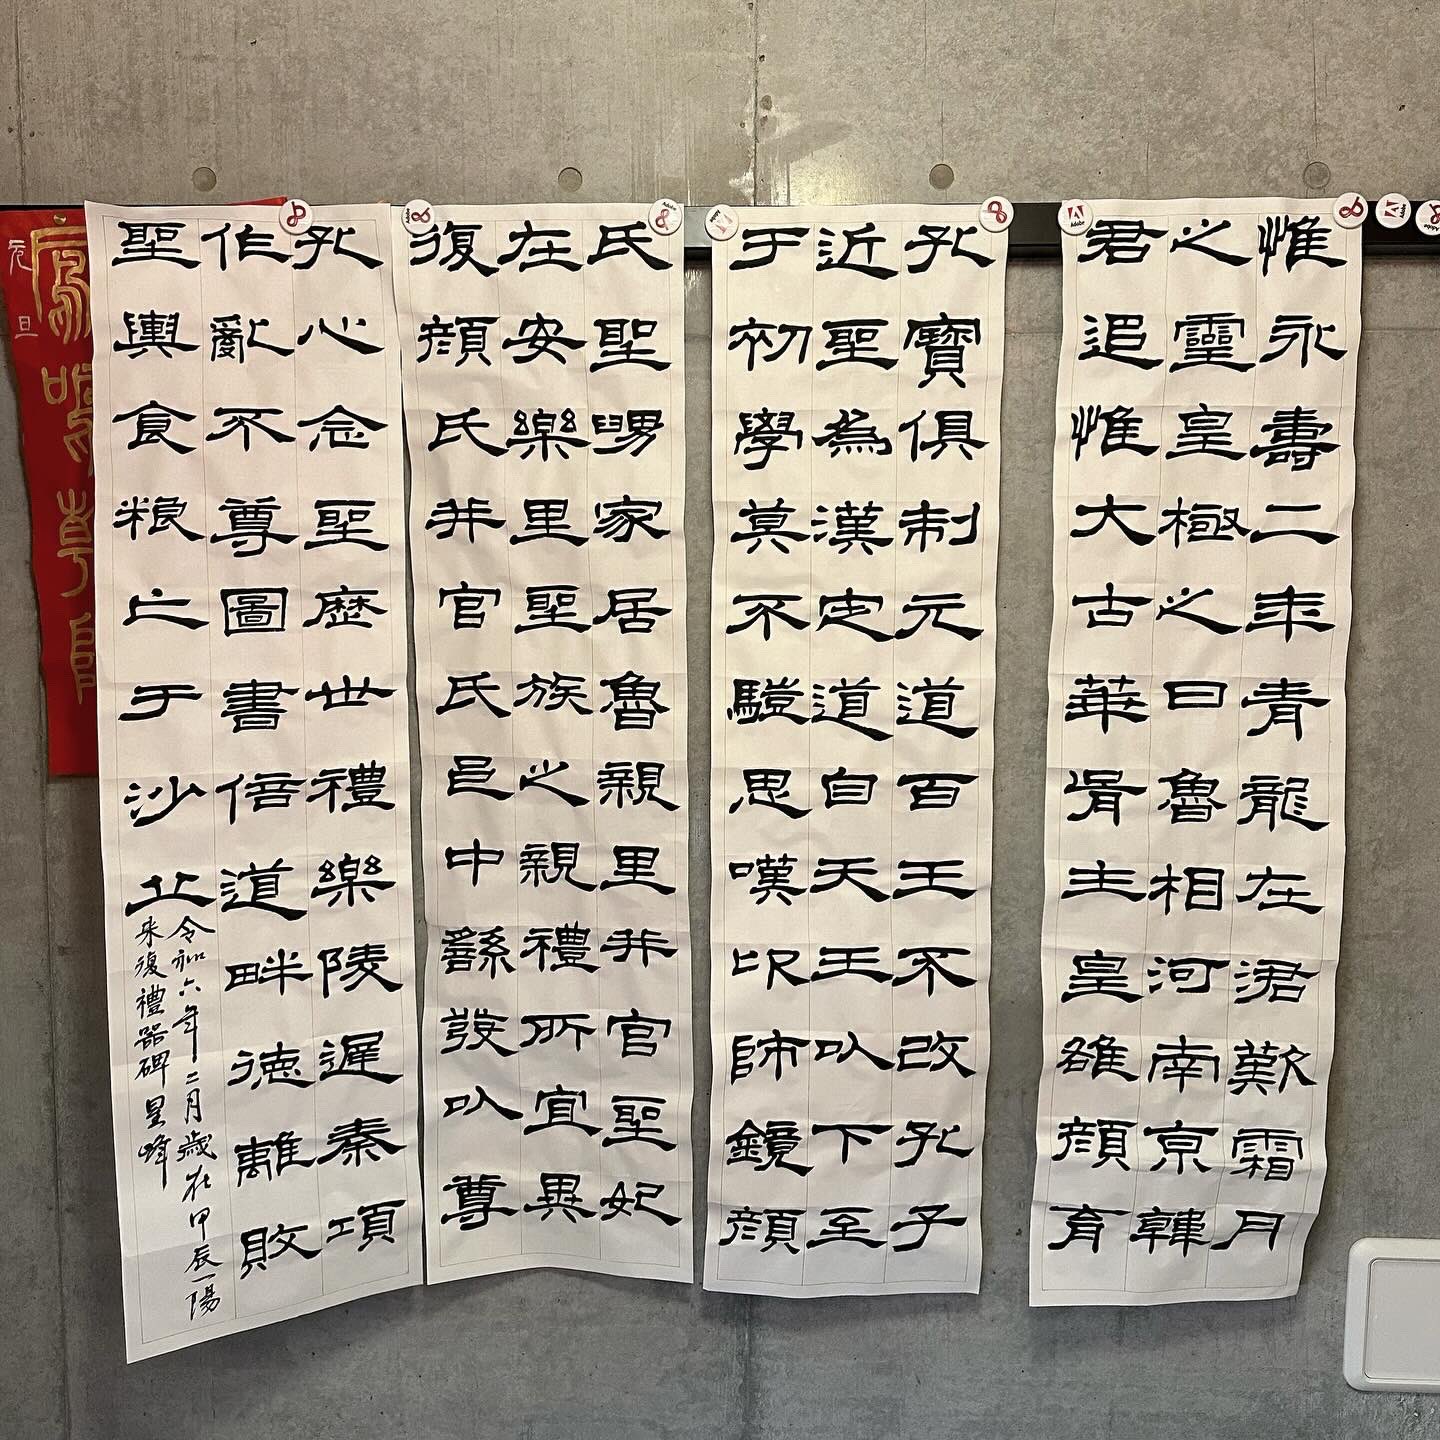 惟永壽二年青龍在涒歎霜月
之靈皇極之日魯相河南京韓
君追惟大古華胥生皇雄顏育
孔寶俱制元道百王不改孔子
近聖為漢定道自天王以下至
于初學莫不驥思嘆卬師鏡顏
氏聖舅家居魯親里并官聖妃
在安樂里聖族之親禮所宜異
復顏氏并官氏邑中繇發以尊
孔心念聖歷世禮樂陵遲秦項
作亂不尊圖書倍道畔德離敗
聖輿食糧亡于沙丘
令和六年二月歲在甲辰一陽
来復禮器碑 星峰
元旦
Adobe
Adobe
Adobe
Adobe
Adobe